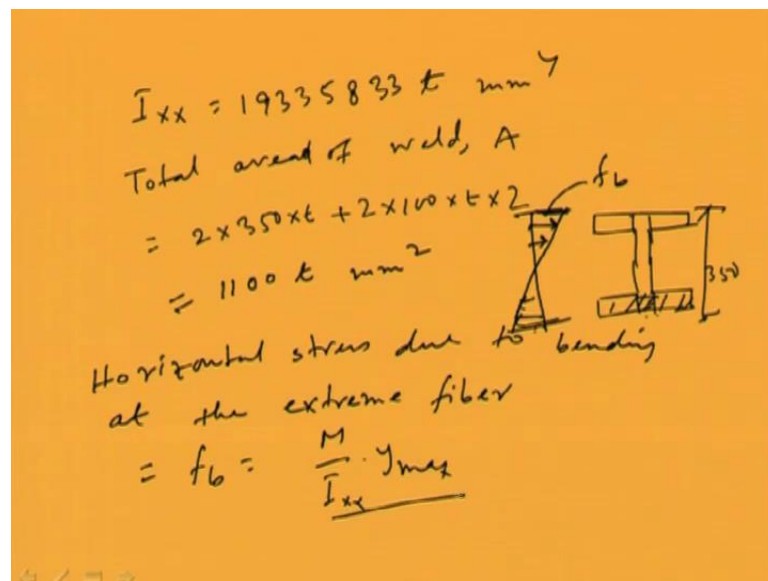 Ixx = 19335833 t mm4
Total aread of weld, A
= 2×350×t + 2×100×t×2
= 1100 t mm2
fb
350
Horizontal stress due to bending
at the extreme fiber
= fb = M/Ixx · ymax